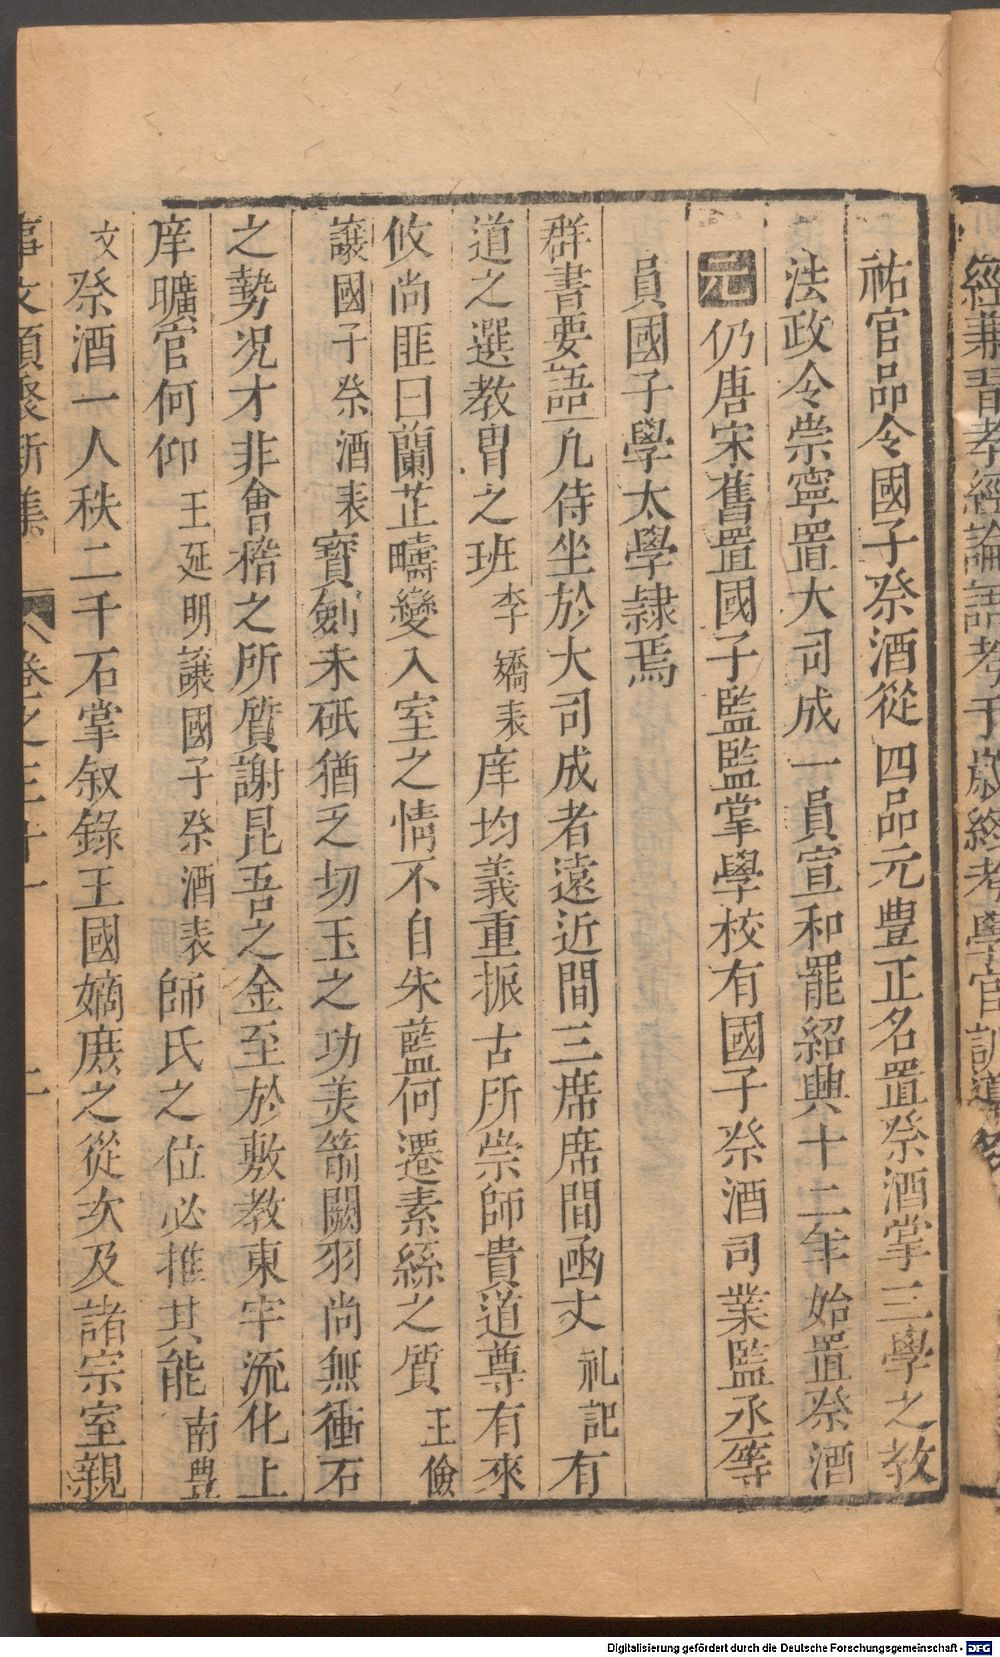 祐官品令國子祭酒從四品元豊正名置祭酒掌三學之教
法政令崇寧置大司成一員宣和罷紹興十二年始置祭酒
元仍唐宋舊置國子監監掌學校有國子祭酒司業監丞等
員國子學太學隷焉
群書要語凡侍坐於大司成者遠近間三席席間函丈礼記有
道之選教胄之班李嶠表庠均義重振古所崇師貴道尊有來
攸尚匪曰蘭芷疇變入室之情不自朱藍何遷素絲之質王儉
讓國子祭酒表寳劍未砥猶乏切玉之功美箭闕羽尚無衝石
之勢况才非會稽之所質謝昆吾之金至於敷教東宇流化上
庠曠官何仰王延明讓國子祭酒表師氏之位必推其能南豊
文祭酒一人秩二千石掌叙錄王國嫡庶之從次及諸宗室親
事文類聚新集 卷之三十一 二
經兼習孝經論語孝于成經考學官訓導
Digitalisierung gefördert durch die Deutsche Forschungsgemeinschaft - DFG